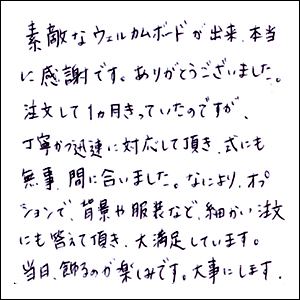 素敵なウェルカムボードが出来、本当
に感謝です。ありがとうございました。
注文して1ヵ月きっていたのですが、
丁寧かつ迅速に対応して頂き、式にも
無事、間に合いました。なにより、オプ
ションで、背景や服装など、細かい注文
にも答えて頂き、大満足しています。
当日、飾るのが楽しみです。大事にします.